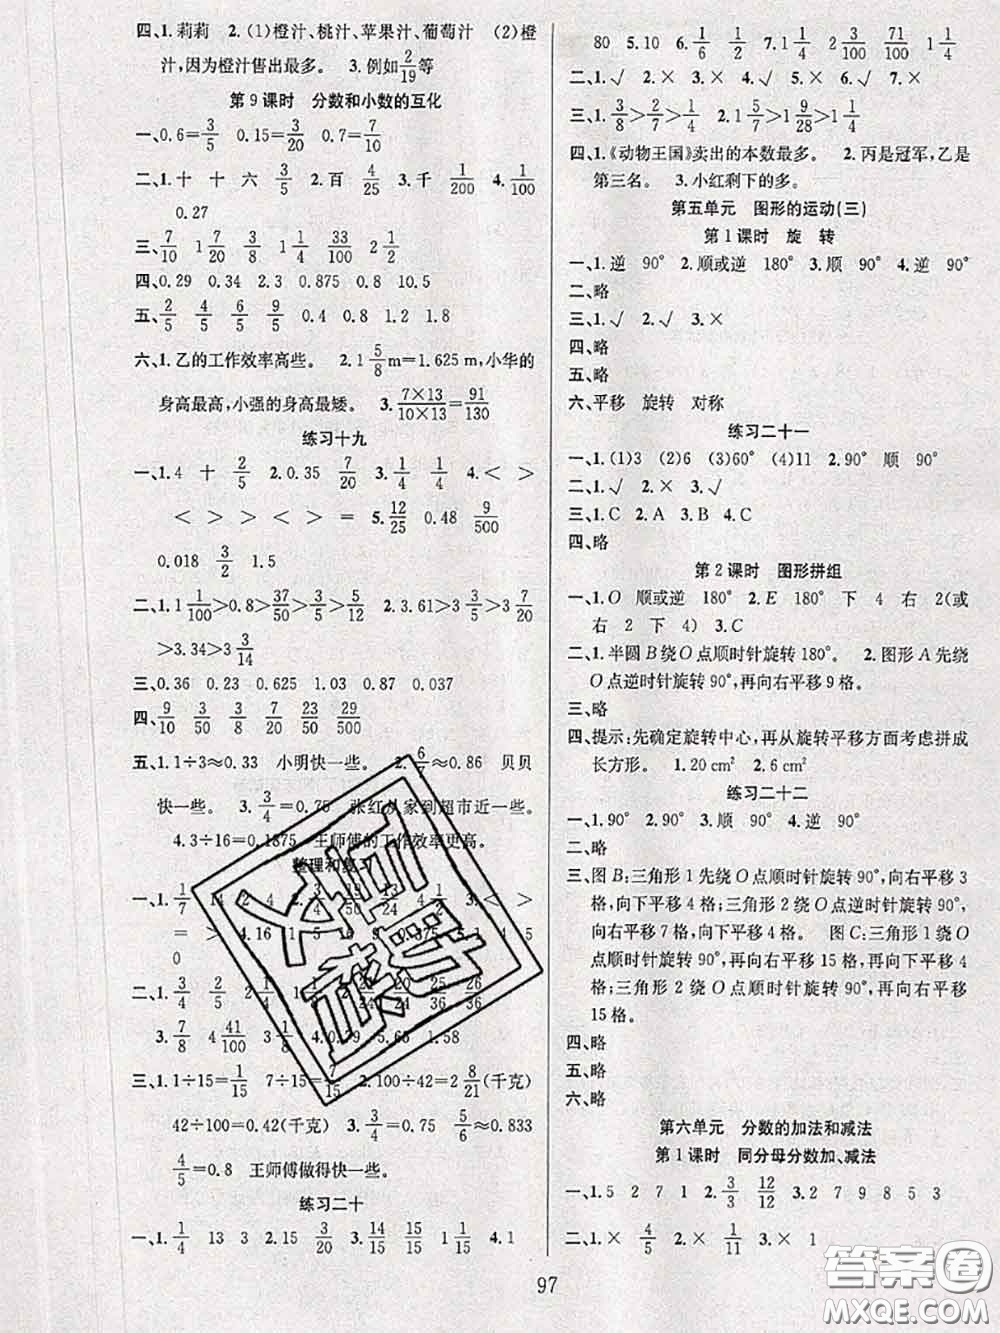 四、1. 莉莉 2. (1)橙汁、桃汁、苹果汁、葡萄汁 (2)橙
汁,因为橙汁售出最多。 3. 例如2/19等
第9课时 分数和小数的互化
一、0.6=3/5 0.15=3/20 0.7=7/10
二、1. 十 十 六 3/5 2. 百 4/25 3. 千 1/200 4. 1/100
0.27
三、7/10 1 7/20 3/8 1 1/4 33/100 2 1/4
四、0.29 0.34 2.3 0.875 1.8 0.625
五、2/5 4/5 6/5 9/5 0.4 0.8 1.2 1.8
六、1. 乙的工作效率高些。 2. 1 5/8 m=1.625 m,小华的
身高最高,小强的身高最矮。 3. 7×13/10×13=91/130
练习十九
一、1. 4 十 2/5 2. 0.35 7/20 3. 1/4 1/4 4. < >
< > > < > = 5. 12/25 0.48 9/500
0.018 3/2 1.5
二、1. 1 1/100>0.8>37/50>3/5>5/12 2. 3.61>3 1/2
>3.34>3 3/14
三、0.36 0.23 0.625 1.03 0.87 0.037
四、9/10 3/50 3/8 7/20 23/50 29/500
五、1. 1÷3≈0.33 小明快一些。 2. 6/7≈0.86 贝贝
快一些。 3. 3/4=0.75 张红从家到超市近一些。
4. 3÷16=0.1875 王师傅的工作效率更高。
整理和复习
一、1. 1/7 14 2 4 2. 3/4
> 4. 16 1 5 4 5
0
二、1. 3/4 2/5 2. 1/2 26/36
3. 7/8 4 41/100 3 1/8 4. 0.79 5.65 1.04
三、1. 1÷15=1/15 7÷15=7/15 2. 100÷42=2 8/21(千克)
42÷100=0.42(千克) 3. 3/4=0.75 5/6≈0.833
4/5=0.8 王师傅做得快一些。
练习二十
一、1. 1/4 13 3 2. 3/20 3. 14/15 15/15 1 1/15 4. 1
80 5. 10 6. 1/6 1/2 7. 2 3/100 71/100 1 1/4
二、1. √ 2. × 3. × 4. √ 5. √ 6. √ 7. ×
三、1. 3/8>2/7>1/4 2. 1 5/7>1 9/28>1 3/14
四、1.《动物王国》卖出的本数最多。 2. 丙是冠军,乙是
第三名。 3. 小红剩下的多。
第五单元 图形的运动(三)
第1课时 旋 转
一、1. 逆 90° 2. 顺或逆 180° 3. 顺 90° 4. 逆 90°
二、略
三、1. √ 2. √ 3. ×
四、略
五、略
六、平移 旋转 对称
练习二十一
一、1. (1)3 (2)6 (3)60° (4)11 2. 90° 顺 90°
二、1. √ 2. × 3. √
三、1. C 2. A 3. B 4. C
四、略
第2课时 图形拼组
一、1. O 顺或逆 180° 2. E 180° 下 4 右 2(或
右 2 下 4) 3. C
二、1. 半圆 B 绕 O 点顺时针旋转 180°。 2. 图形 A 先绕
O 点逆时针旋转 90°,再向右平移 9 格。
三、略
四、提示:先确定旋转中心,再从旋转平移方面考虑拼成
长方形。 1. 20 cm² 2. 6 cm²
练习二十二
一、1. 90° 2. 90° 3. 顺 90° 4. 逆 90°
二、略
三、图 B:三角形 1 先绕 O 点顺时针旋转 90°,向右平移 3
格,向下平移 4 格;三角形 2 绕 O 点逆时针旋转 90°,
向右平移 7 格,向下平移 4 格。 图 C:三角形 1 绕 O
点顺时针旋转 90°,再向右平移 15 格,再向下平移 4
格;三角形 2 绕 O 点顺时针旋转 90°,再向右平移
15 格。
四、略
五、略
六、略
第六单元 分数的加法和减法
第1课时 同分母分数加、减法
一、1. 5 2 7 1 2. 3/3 12/12 3. 2 7 9 8 5 3
二、1. × 4/5 2. × 1/11 3. × 1
97
答案圈
MXQE.COM